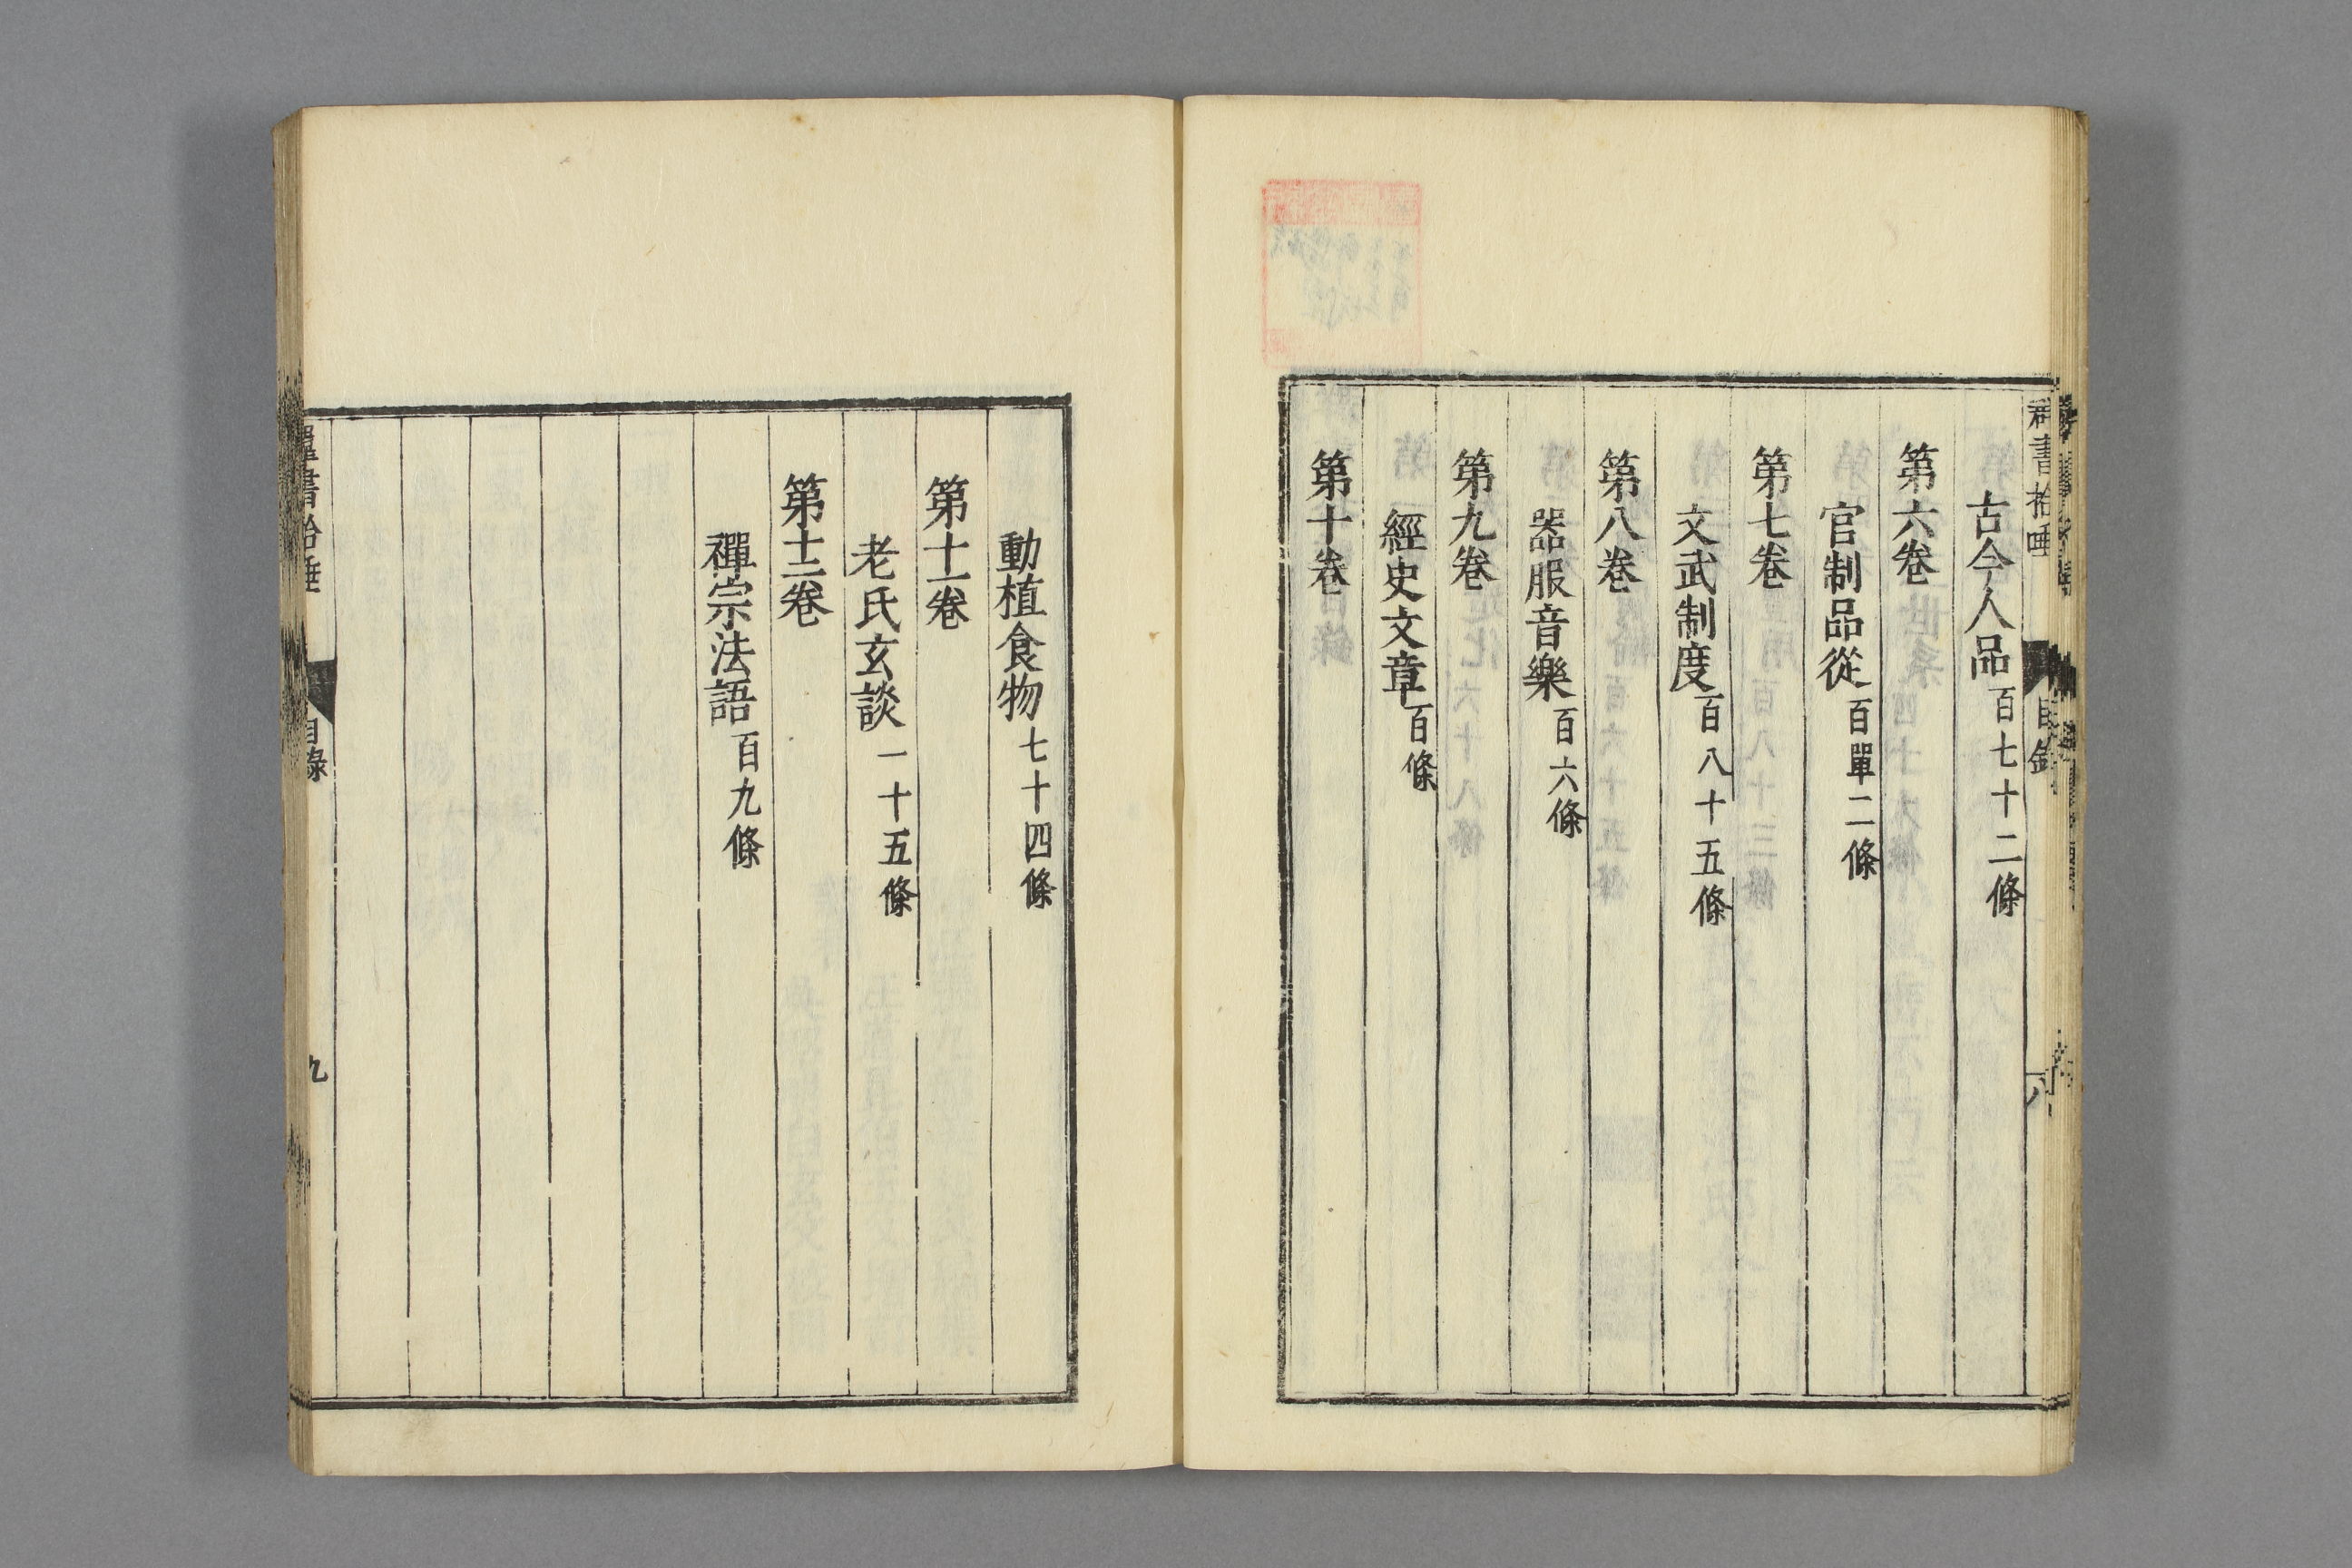 群書拾唾
目錄
八
古今人品百七十二條
第六卷
官制品從百單二條
第七卷
文武制度百八十五條
第八卷
器服音樂百六條
第九卷
經史文章百條
第十卷
動植食物七十四條
第十一卷
老氏玄談一十五條
第十二卷
禪宗法語百九條
群書拾唾
目錄
九